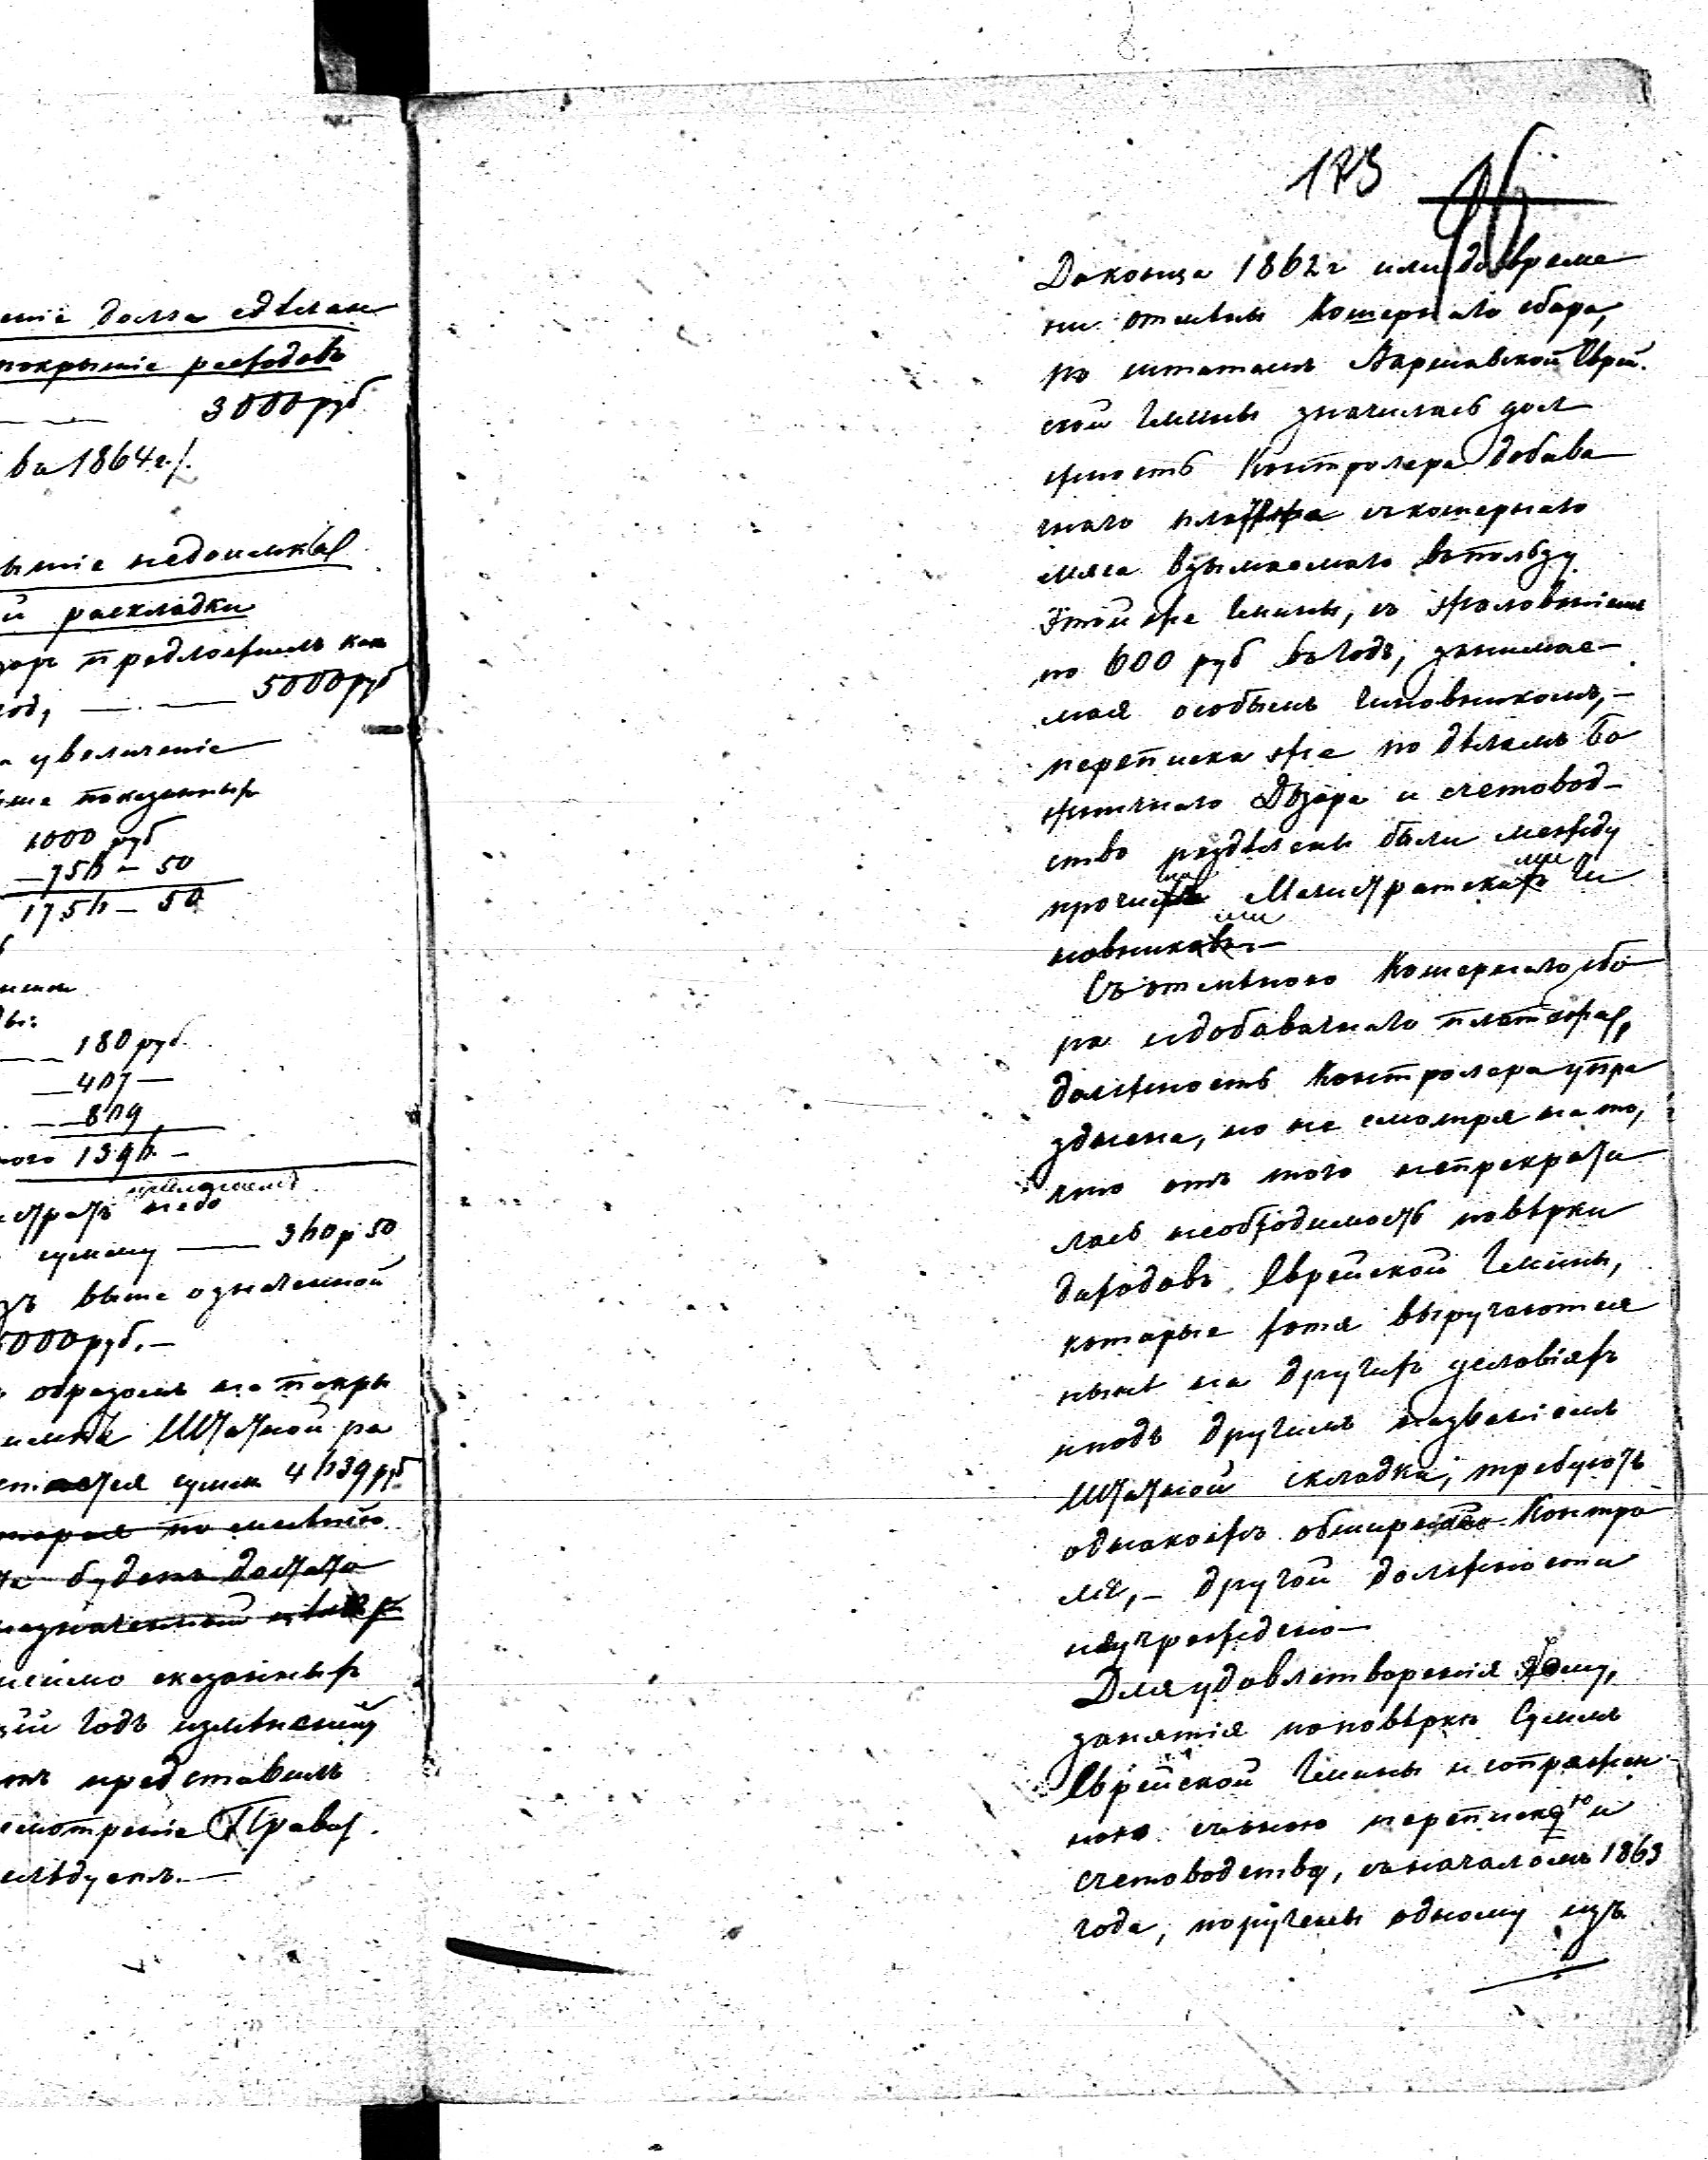 еніе долга сдѣлан
покрытіе расходовъ
3000 руб.
ва 1864 г./.
ытіе недоимка
й раскладки
зоръ предложилъ как
год, — — 5000 руб
увеличеніе
ше показанных
1000 руб
— 756 — 50
1756 — 50
ды:
180 руб.
— 407 —
— 809
ого 1396 —
стратъ всего
сумму — 360 р 50
зъ выше означенной
5000 руб. —
образомъ не покры
Штатной ра
ется сумма 4639 руб
торая по смѣтѣ
будетъ достато
назначенной
симо сказанных
щій годъ измѣненій
тъ представилъ
смотреніе Правит.
слѣдуетъ. —
175
Доконца 1862 г или до време
ни отмѣны кошернаго сбора,
по штатамъ Варшавской Еврей.
ской Гмины значилась дол
жность Контролера добаво
чнаго платежа съ кошернаго
мяса взымаемаго въ пользу
этой же Гмины, съ жалованіемъ
по 600 руб въ годъ, занимае-
мая особымъ чиновникомъ, —
переписка же по дѣламъ Бо
жничнаго Дозора и счетовод-
ство раздѣлены были между
прочими Магистратскими Чи
новниками. —
Съ отмѣною Кошернаго сбо
ра и добавочнаго платежа,
должность Контролера упра
зднена, но не смотря на то,
что отъ того непрекрати
лась необходимость повѣрки
доходовъ Еврейской Гмины,
которые хотя выручаются
нынѣ на другихъ условіяхъ
и подъ другимъ названіемъ
Штатной складки, требуютъ
однакожъ обширнаго Контро
ля, — другой должности
неучреждено —
Для удовлетворенія сему,
занятія по повѣрке Суммъ
Еврейской Гмины и сопряжен
ною съ оною перепискою и
счетоводству, съ началомъ 1863
года, поручены одному изъ